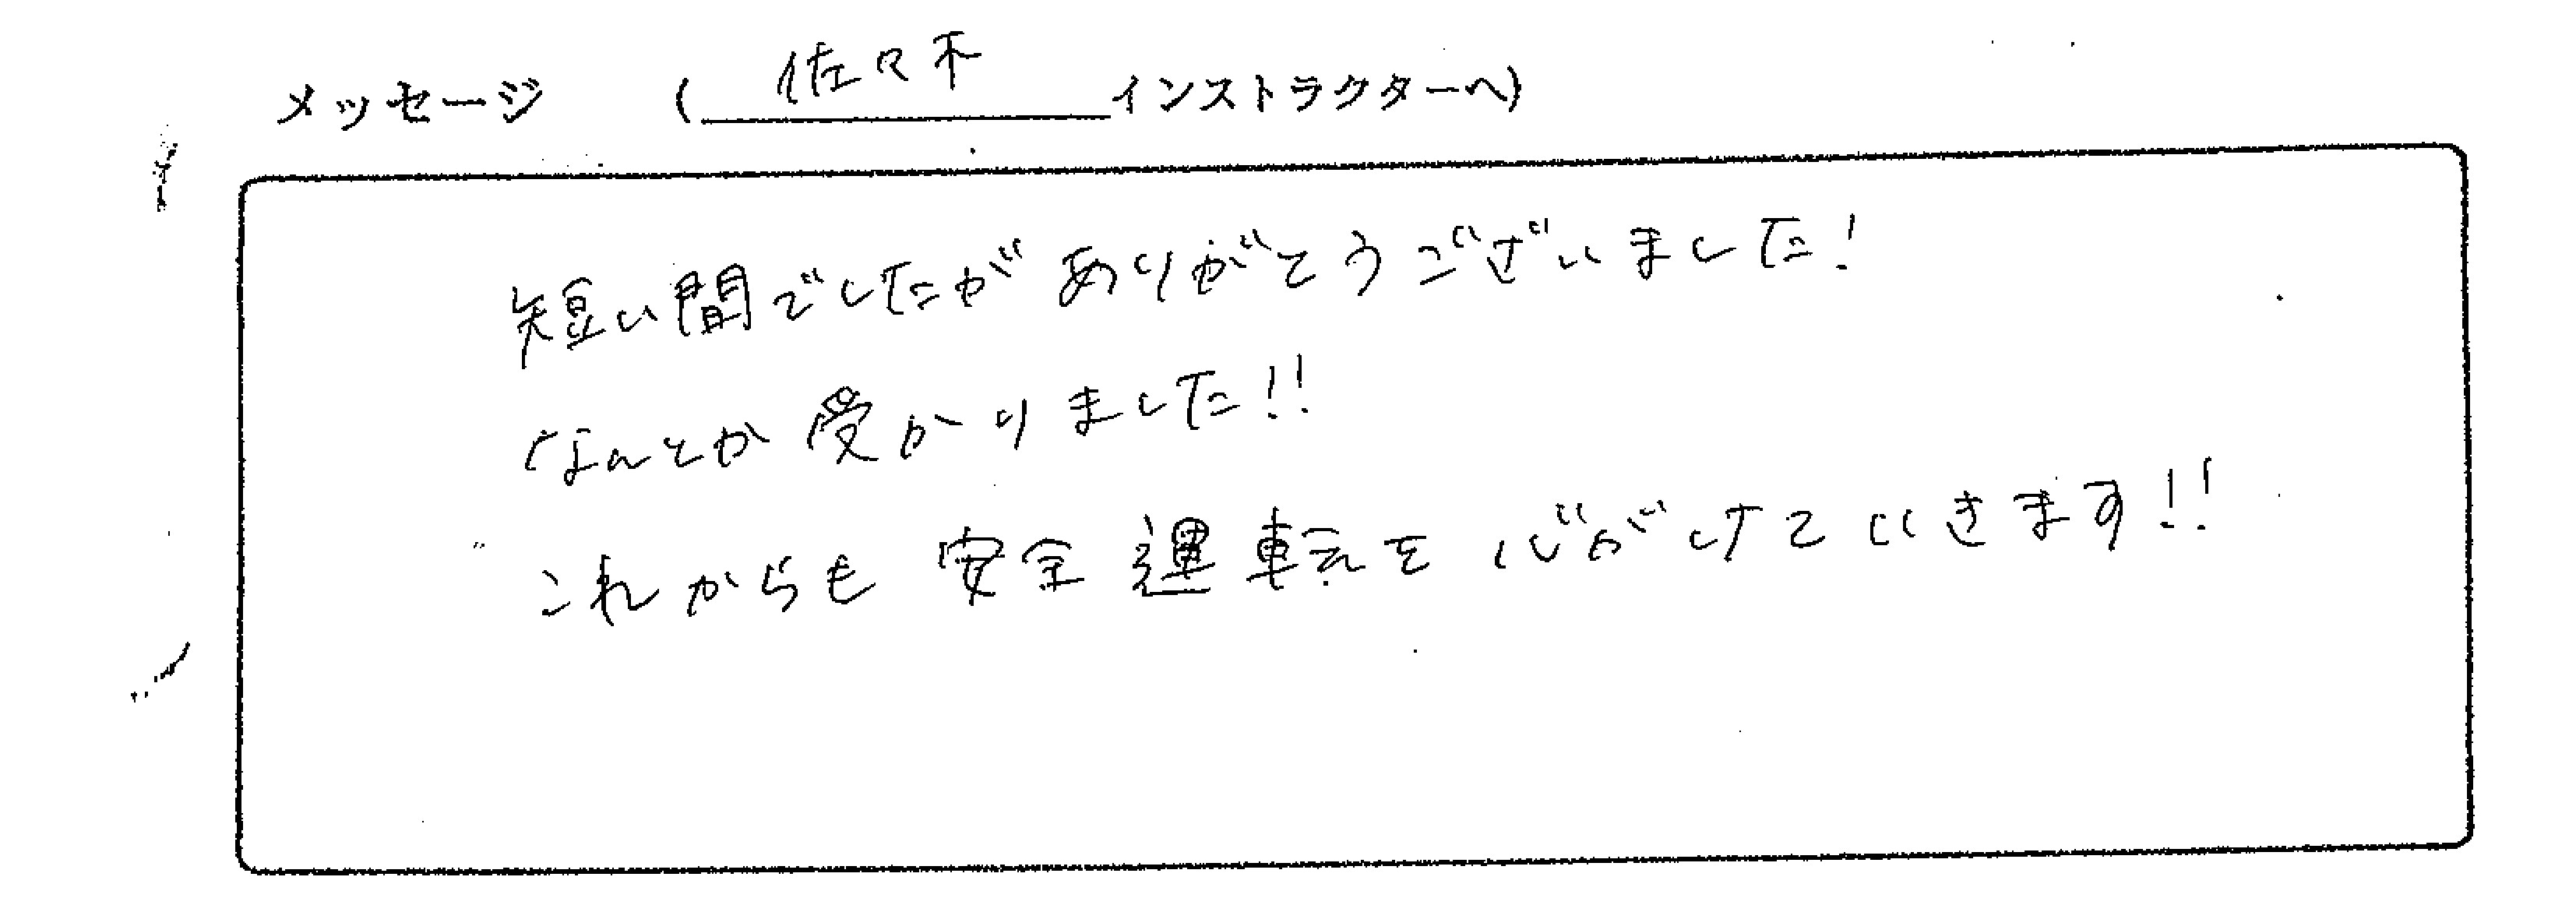 メッセージ (佐々木インストラクターへ)
短い間でしたがありがとうございました!
なんとか受かりました!!
これからも安全運転を心がけていきます!!